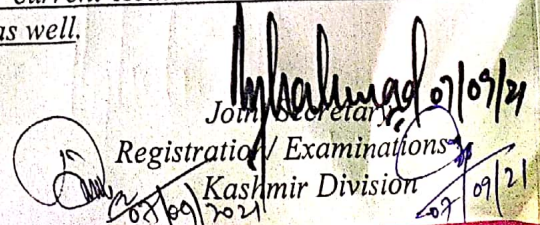 as well.
07/09/21
Joint Secretary
Registration/ Examinations
Kashmir Division
07/09/2021
07/09/21